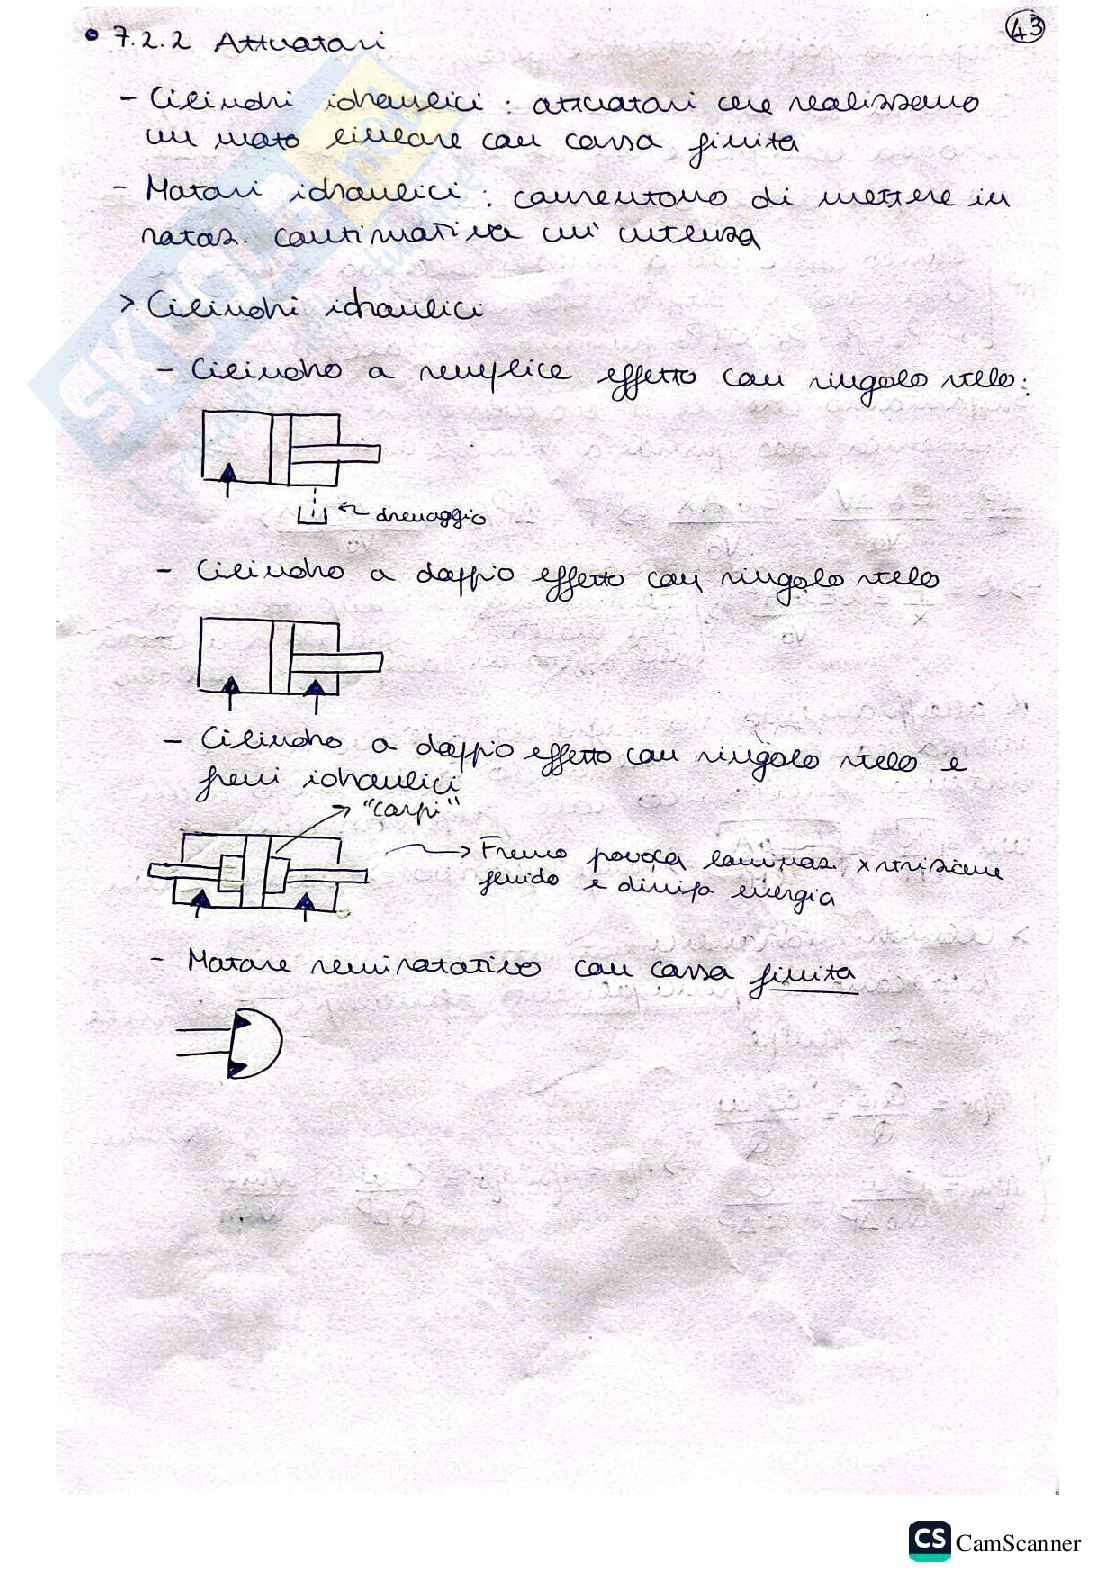 43
• 7.2.2 Attuatori
- Cilindri idraulici : attuatori che realizzano
un moto lineare con corsa finita
- Motori idraulici : consentono di mettere in
rotaz. continuativa un'utenza
> Cilindri idraulici
- Cilindro a semplice effetto con singolo stelo:
drenaggio
- Cilindro a doppio effetto con singolo stelo
- Cilindro a doppio effetto con singolo stelo e
freni idraulici
"corpi"
Freno provoca laminaz. x
fluido e dissipa energia
- Motore semirotativo con corsa finita
SKUOLA.net
CS CamScanner